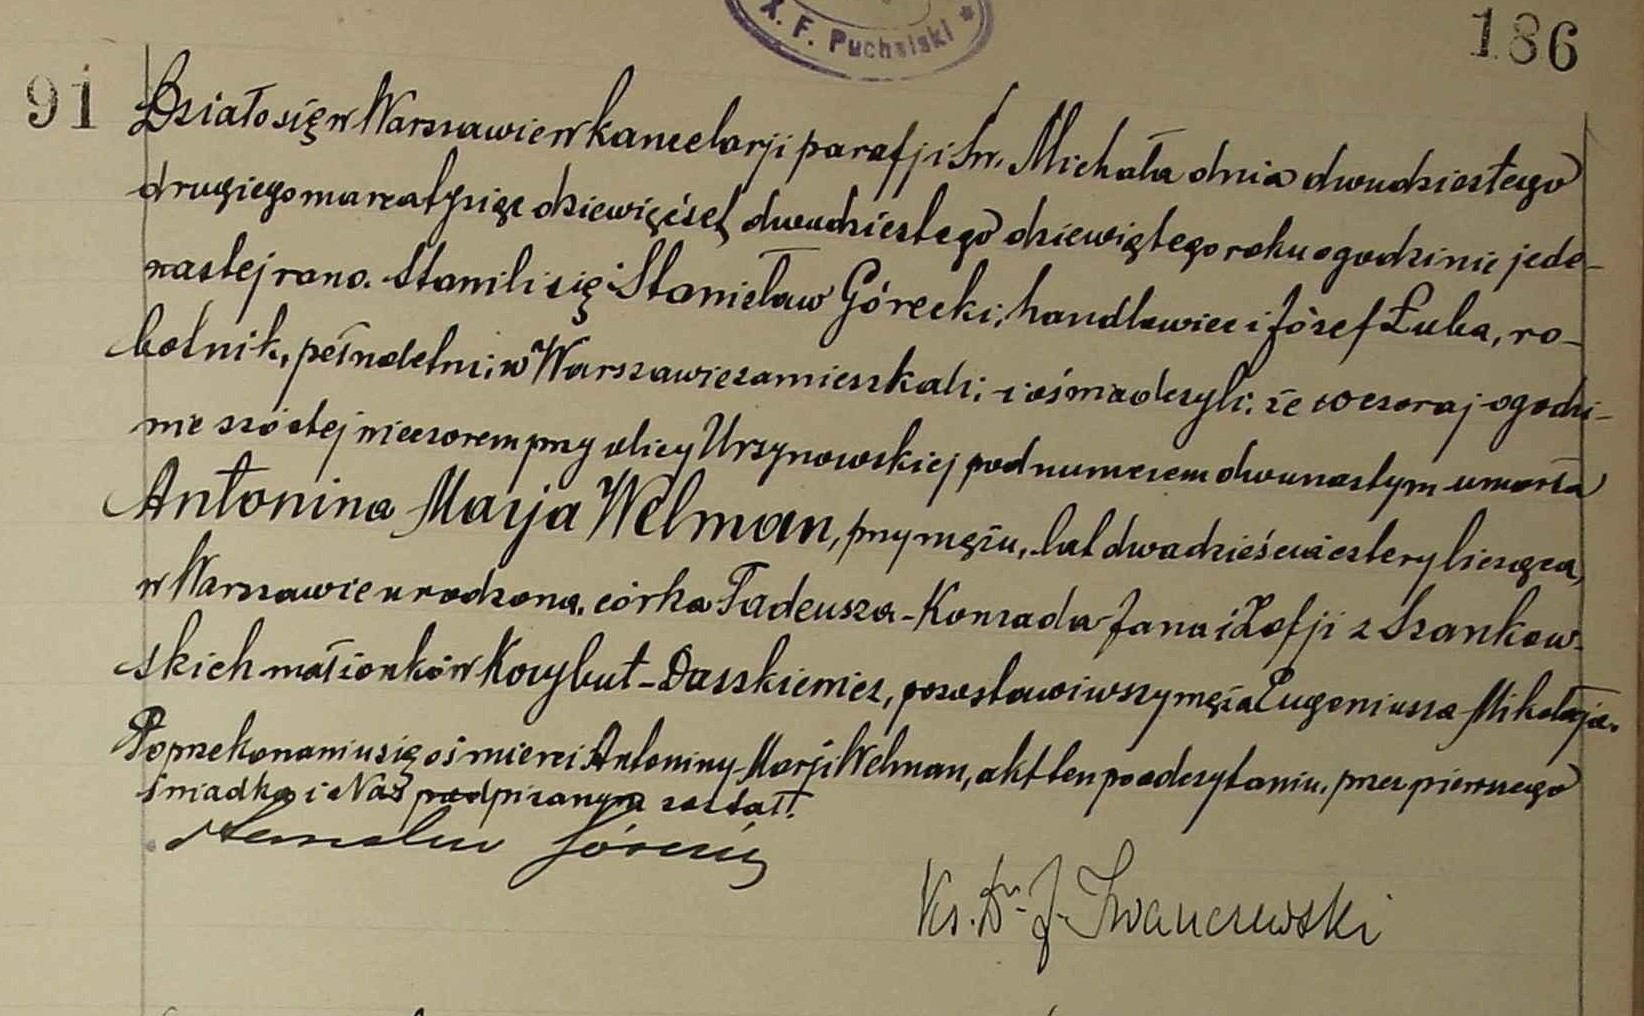 X. F. Puchalski *
186
91
Działo się w Warszawie w kancelarji parafji Św. Michała dnia dwudziestego
drugiego marca tysiąc dziewięćset dwudziestego dziewiątego roku o godzinie jede-
nastej rano. Stawili się Stanisław Górecki, handlowiec i Józef Łuba, ro-
botnik, pełnoletni, w Warszawie zamieszkali, i oświadczyli, że wczoraj o godzi-
nie szóstej wieczorem przy ulicy Ursynowskiej pod numerem dwunastym umarła
Antonina Marja Welman, przy mężu, lat dwadzieścia cztery licząca,
w Warszawie urodzona, córka Tadeusza-Konrada Jana i Zofji z Szankow-
skich małżonków Korybut-Daszkiewicz, pozostawiwszy męża Eugeniusza Mikołaja.
Po przekonaniu się o śmierci Antoniny Marji Welman, akt ten po odczytaniu, przez pierwszego
świadka i Nas podpisanym został.
Stanisław Górecki
Ks. Dr. J. Iwanczewski